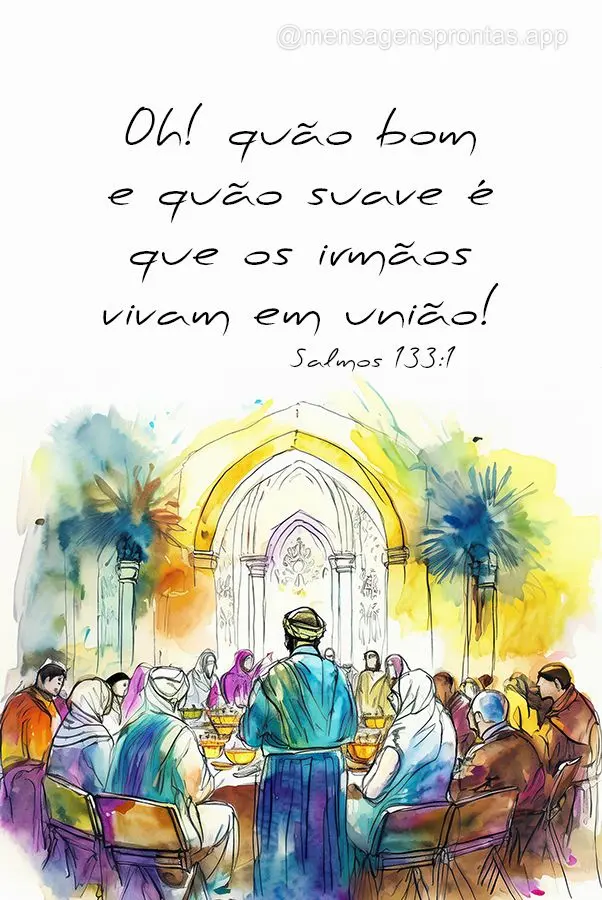 @mensagensprontas.app
Oh! quão bom
e quão suave é
que os irmãos
vivam em união!
Salmos 133:1